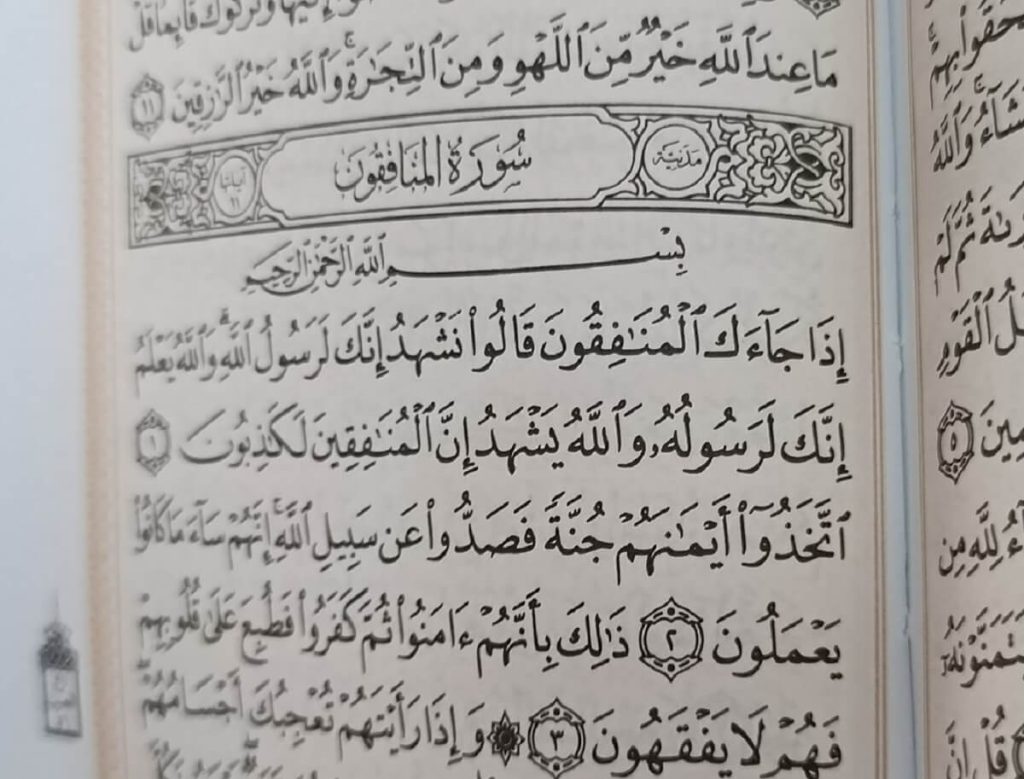 مَا عِندَ ٱللَّهِ خَيۡرٌ مِّنَ ٱللَّهۡوِ وَمِنَ ٱلتِّجَٰرَةِۚ وَٱللَّهُ خَيۡرُ ٱلرَّٰزِقِينَ ١١
مَدَنيّة
سُورَةُ المُنَافِقُونَ
آياتها ١١
بِسۡمِ ٱللَّهِ ٱلرَّحۡمَٰنِ ٱلرَّحِيمِ
إِذَا جَآءَكَ ٱلۡمُنَٰفِقُونَ قَالُواْ نَشۡهَدُ إِنَّكَ لَرَسُولُ ٱللَّهِۗ وَٱللَّهُ يَعۡلَمُ
إِنَّكَ لَرَسُولُهُۥ وَٱللَّهُ يَشۡهَدُ إِنَّ ٱلۡمُنَٰفِقِينَ لَكَٰذِبُونَ ١
ٱتَّخَذُوٓاْ أَيۡمَٰنَهُمۡ جُنَّةٗ فَصَدُّواْ عَن سَبِيلِ ٱللَّهِۚ إِنَّهُمۡ سَآءَ مَا كَانُواْ
يَعۡمَلُونَ ٢ ذَٰلِكَ بِأَنَّهُمۡ ءَامَنُواْ ثُمَّ كَفَرُواْ فَطُبِعَ عَلَىٰ قُلُوبِهِمۡ
فَهُمۡ لَا يَفۡقَهُونَ ٣ ۞ وَإِذَا رَأَيۡتَهُمۡ تُعۡجِبُكَ أَجۡسَامُهُمۡۖ
بِهِمۡۚ
وَٱللَّهُ
ثُمَّ لَمۡ
ٱلۡقَوۡمِ
٥
لِلَّهِ مِن
قُلۡ إِنَّ